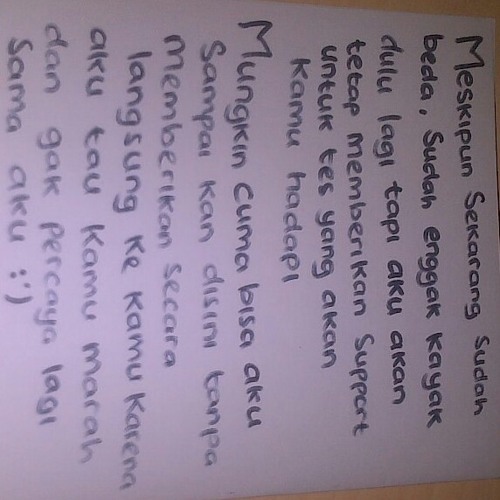 Meskipun Sekarang sudah
beda, Sudah enggak kayak
dulu lagi tapi aku akan
tetap memberikan Support
untuk tes yang akan
kamu hadapi
Mungkin cuma bisa aku
Sampai kan disini tanpa
memberikan secara
langsung ke kamu karena
aku tau kamu marah
dan gak percaya lagi
Sama aku :')